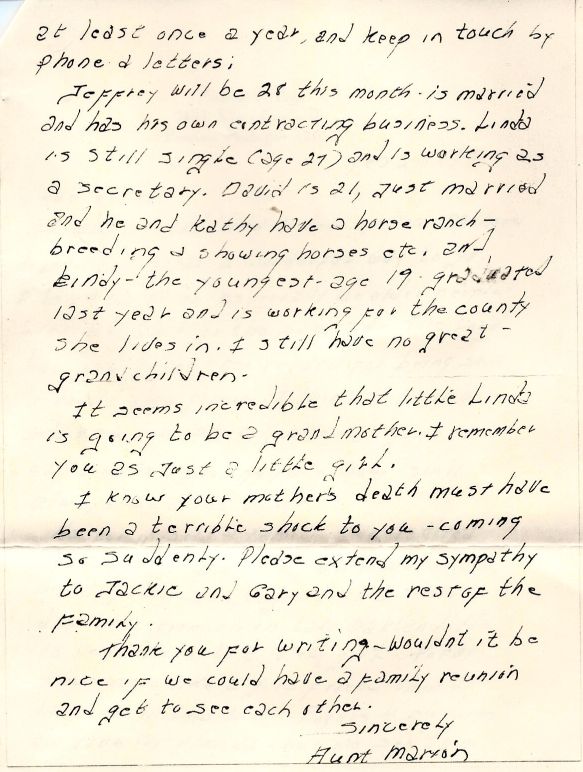 at least once a year, and keep in touch by
phone & letters;
Jeffrey will be 28 this month - is married
and has his own contracting business. Linda
is still single (age 27) and is working as
a secretary. David is 21, just married
and he and Kathy have a horse ranch -
breeding & showing horses etc. and
Cindy - the youngest - age 19 - graduated
last year and is working for the county
she lives in. I still have no great -
grandchildren.
It seems incredible that little Linda
is going to be a grandmother. I remember
you as just a little girl.
I know your mother's death must have
been a terrible shock to you - coming
so suddenly. Please extend my sympathy
to Jackie and Gary and the rest of the
family.
Thank you for writing - wouldnt it be
nice if we could have a family reunion
and get to see each other.
Sincerely
Aunt Marion